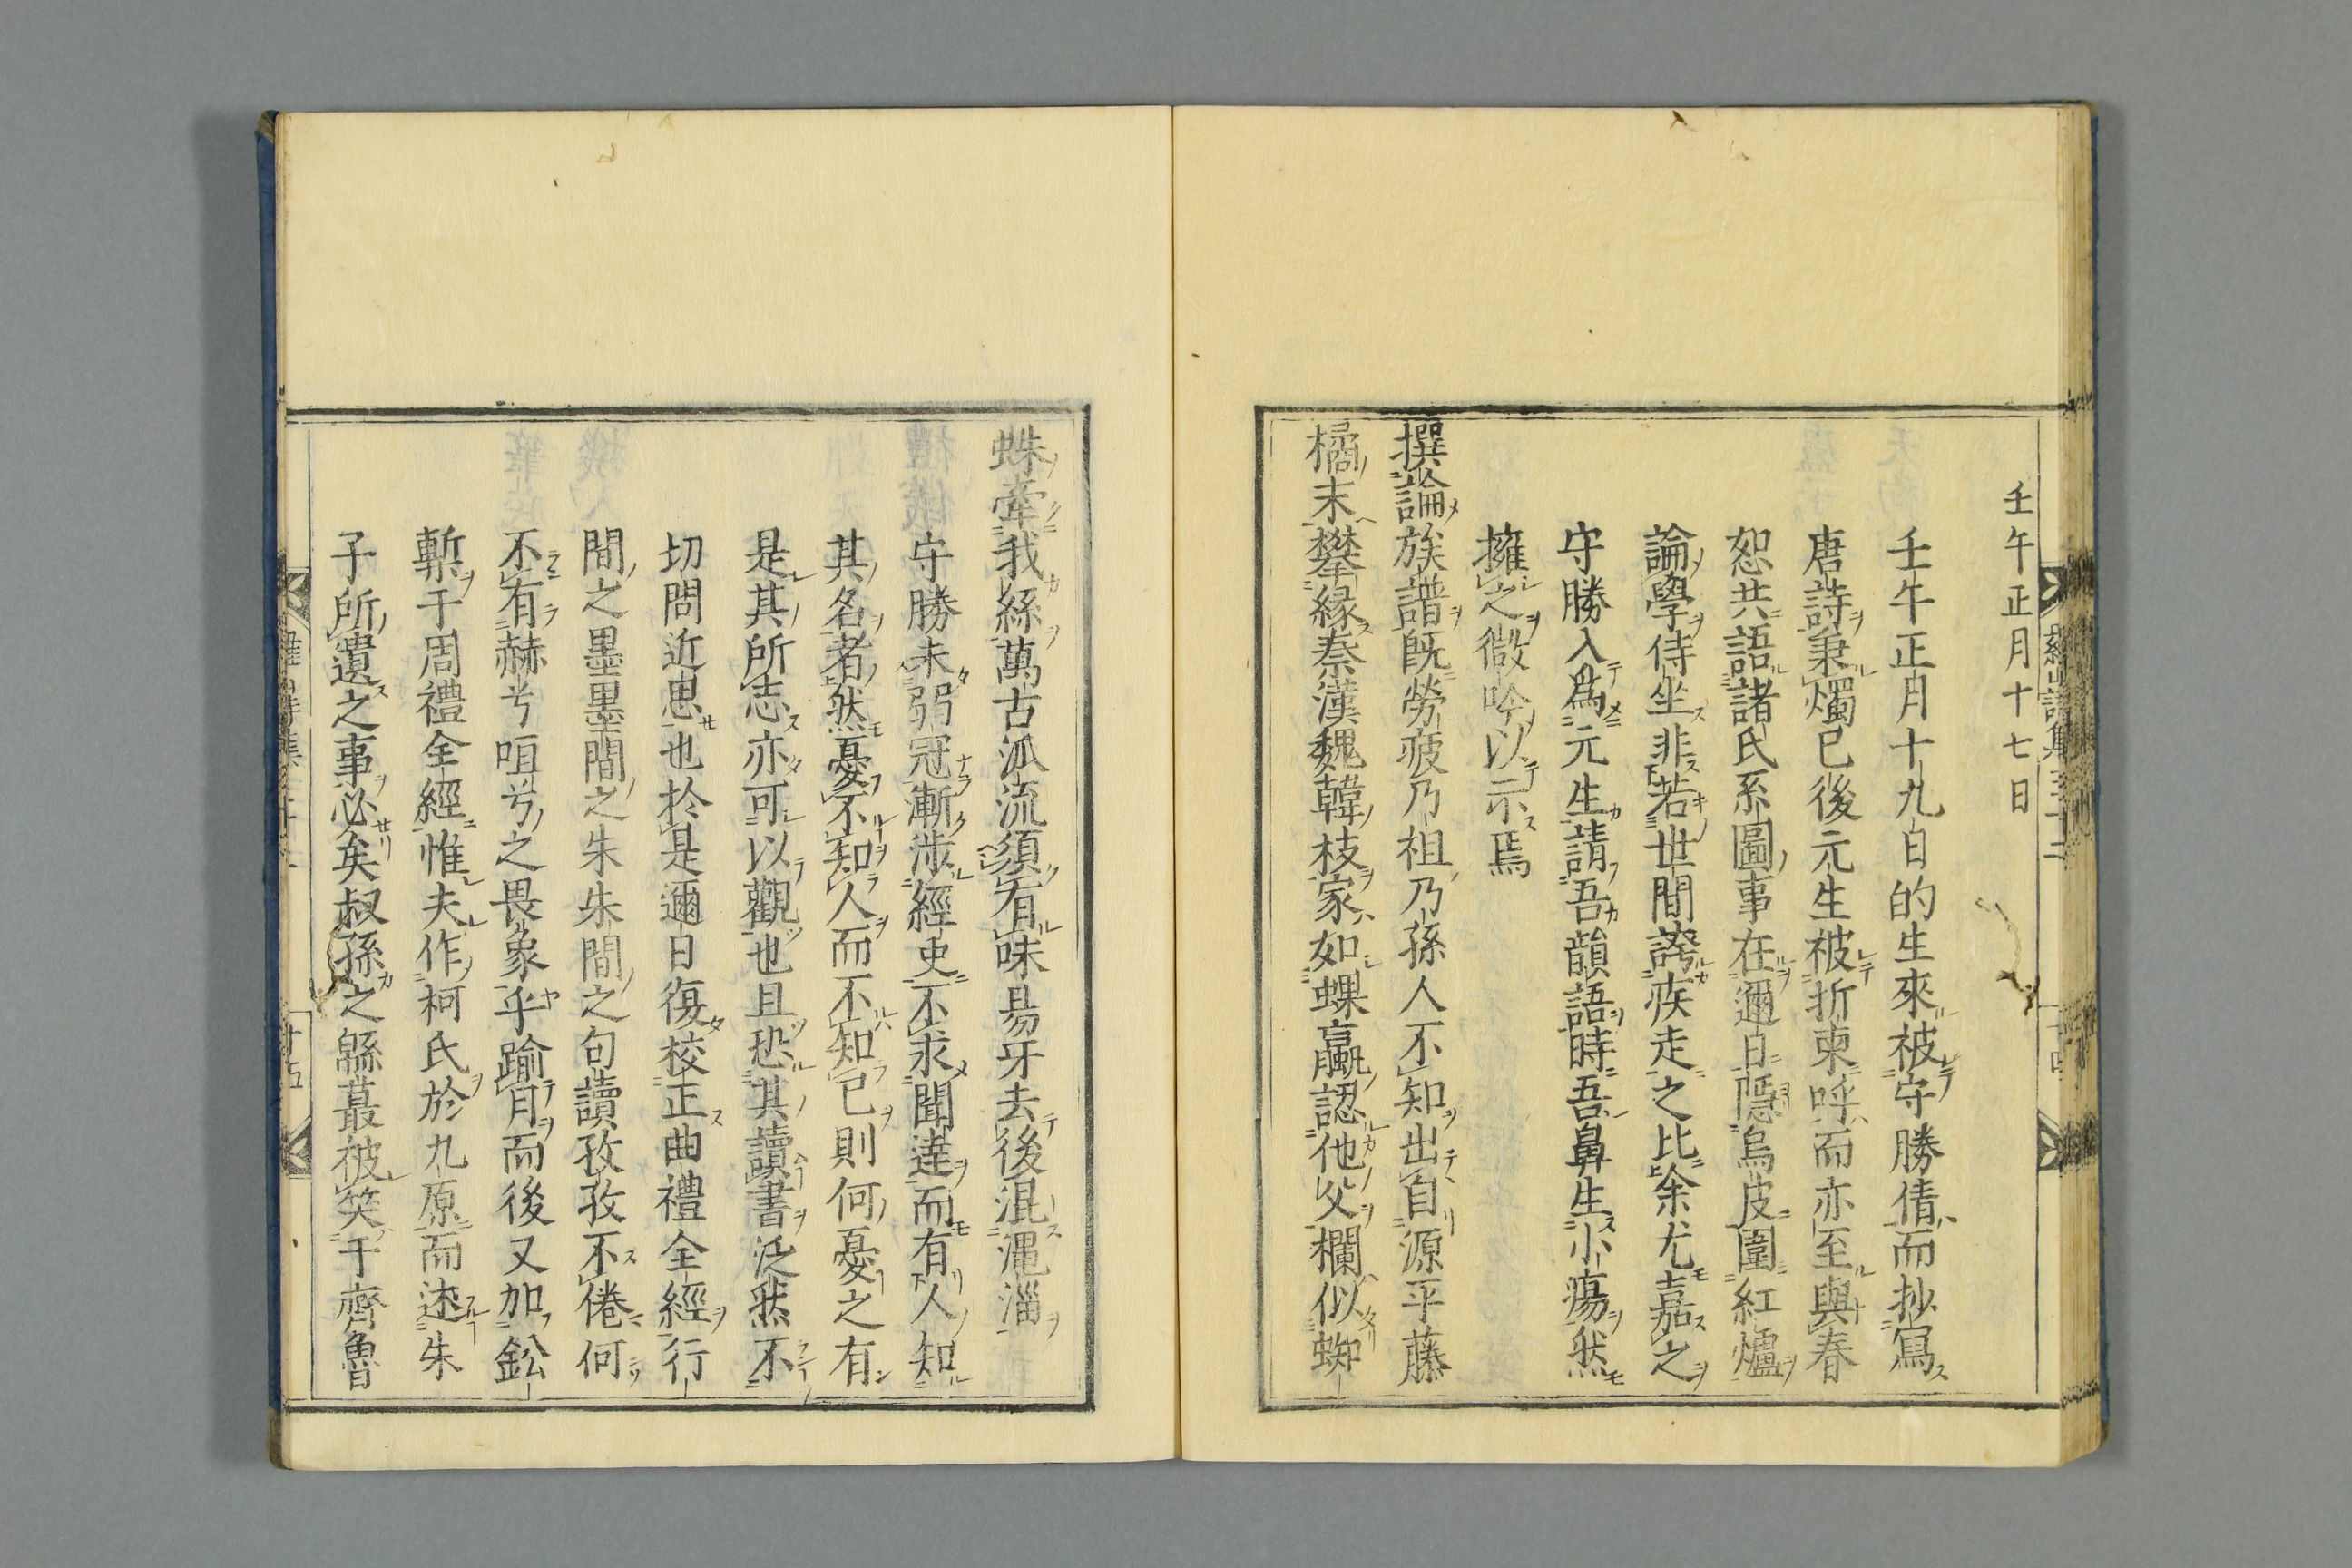 壬午正月十七日
壬午正月十九日的生來被守勝倩而抄寫
唐詩秉燭已後元生被折東呼而亦至與春
恕共語諸氏系圖事在邇日隱烏皮圍紅爐
論學侍坐非若世間誇疾走之比余尤嘉之
守勝入爲元生請吾韻語時吾鼻生小瘍然
擁之微吟以示焉
撰論族譜既勞疲乃祖乃孫人不知出自源平藤
橘末攀緣秦漢魏韓枝家如蜾蠃認他父欄似蜘
蛛牽我絲萬古泒流須有味易牙去後混澠淄
守勝未弱冠漸涉經史不求聞達而有人知
其名者然憂不知人而不知己則何憂之有
是其所志亦可以觀也且恐其讀書泛然不
切問近思也於是邇日復校正曲禮全經行
間之墨墨間之朱朱間之句讀孜孜不倦何
不有赫兮咺兮之畏象乎踰月而後又加鈆
槧于周禮全經惟夫作柯氏於九原而述朱
子所遺之事必矣叔孫之緜蕞被笑于齊魯